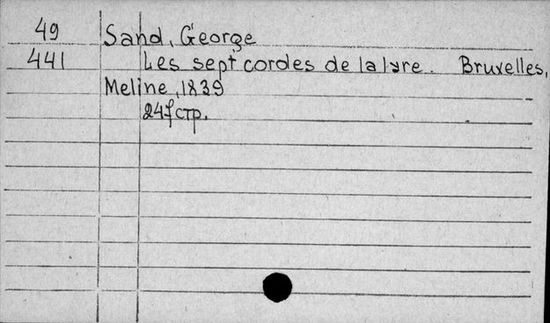 49 Sand, George
441 Les sept cordes de la lyre. Bruxelles,
Meline, 1839
247 стр.